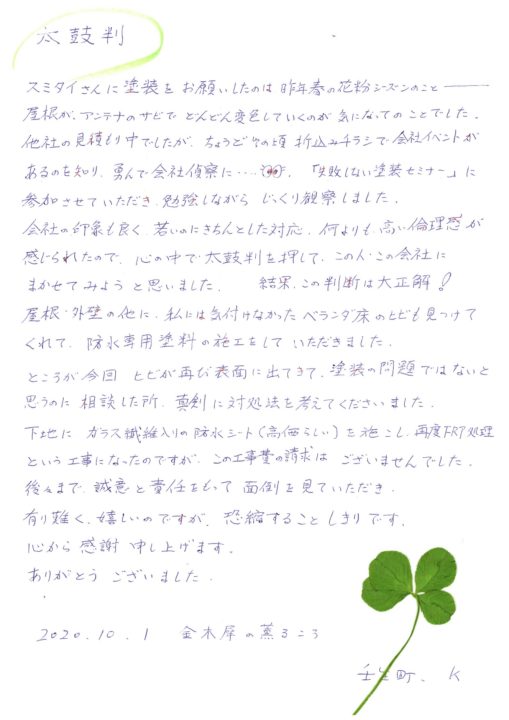 太鼓判
スミタイさんに塗装をお願いしたのは昨年春の花粉シーズンのこと――
屋根が、アンテナのサビでどんどん変色していくのが気になってのことでした。
他社の見積もり中でしたが、ちょうどその頃 折込みチラシで会社イベントが
あるのを知り、勇んで会社偵察に…‥ 、「失敗しない塗装セミナー」に
参加させていただき、勉強しながら じっくり観察しました。
会社の印象も良く、若いのにきちんとした対応、何よりも、高い倫理感が
感じられたので、心の中で太鼓判を押して、この人・この会社に
まかせてみようと思いました。 結果、この判断は大正解!
屋根・外壁の他に、私には気付けなかったベランダ床のヒビも見つけて
くれて、防水専用塗料の施工をしていただきました。
ところが今回 ヒビが再び表面に出てきて、塗装の問題ではないと
思うのに相談した所、真剣に対処法を考えてくださいました。
下地に ガラス繊維入りの防水シート(高価らしい)を施こし、再度FRP処理
という工事になったのですが、この工事費の請求は ございませんでした。
後々まで、誠意と責任をもって面倒を見ていただき、
有り難く、嬉しいのですが、恐縮すること しきりです。
心から感謝申し上げます。
ありがとう ございました。
2020.10.1 金木犀の薫るころ
壬生町、K